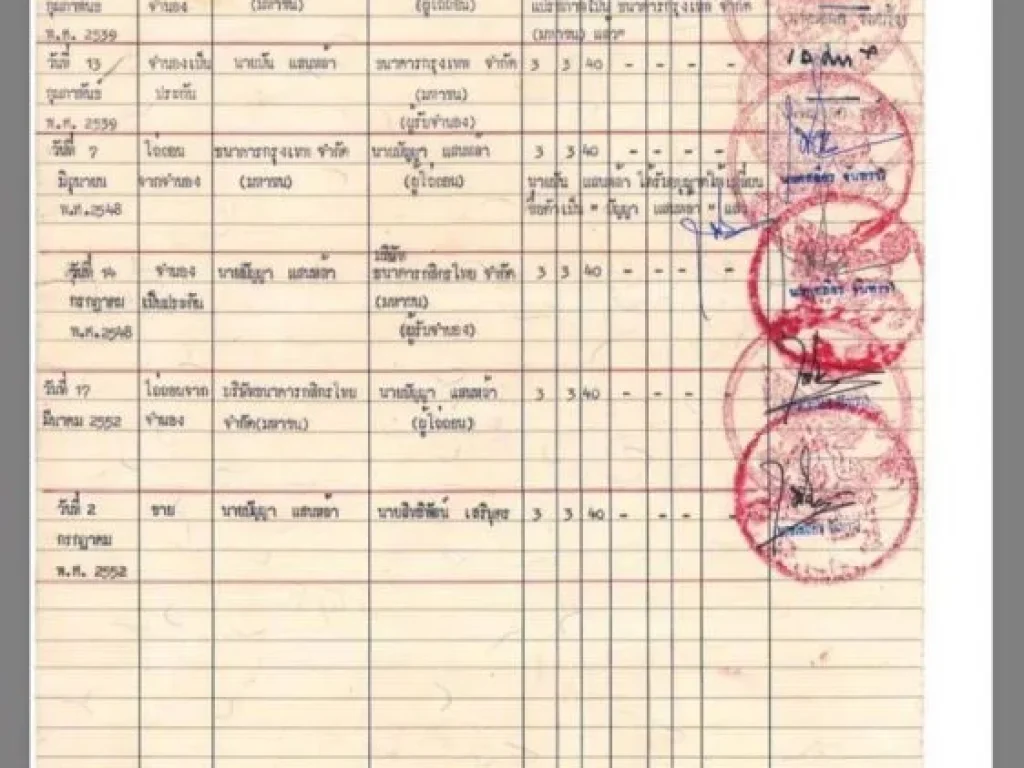 กุมภาพันธ์ จำนอง (มหาชน) (ผู้ไถ่ถอน) แปรสภาพเป็น ธนาคารกรุงเทพ จำกัด
พ.ศ. 2539 (มหาชน) แล้ว"
วันที่ 13 จำนองเป็น นายปั่น แสนหล้า ธนาคารกรุงเทพ จำกัด 3 3 40 - - - -
กุมภาพันธ์ ประกัน (มหาชน)
พ.ศ. 2539 (ผู้รับจำนอง)
วันที่ 7 ไถ่ถอน ธนาคารกรุงเทพ จำกัด นายปัญญา แสนหล้า 3 3 40 - - - -
มิถุนายน จากจำนอง (มหาชน) (ผู้ไถ่ถอน) แสนหล้า ได้รับอนุญาตให้เปลี่ยน
พ.ศ.2548 ชื่อตัวเป็น " ปัญญา แสนหล้า " แล้ว
บริษัท
วันที่ 14 จำนอง นายปัญญา แสนหล้า ธนาคารกสิกรไทย จำกัด 3 3 40 - - - -
กรกฎาคม เป็นประกัน (มหาชน)
พ.ศ.2548 (ผู้รับจำนอง)
วันที่ 17 ไถ่ถอนจาก บริษัทธนาคารกสิกรไทย นายปัญญา แสนหล้า 3 3 40 - - - -
มีนาคม 2552 จำนอง จำกัด(มหาชน) (ผู้ไถ่ถอน)
วันที่ 2 ขาย นายปัญญา แสนหล้า นายสิทธิพัฒน์ เสริบุตร 3 3 40 - - - -
กรกฎาคม
พ.ศ. 2552